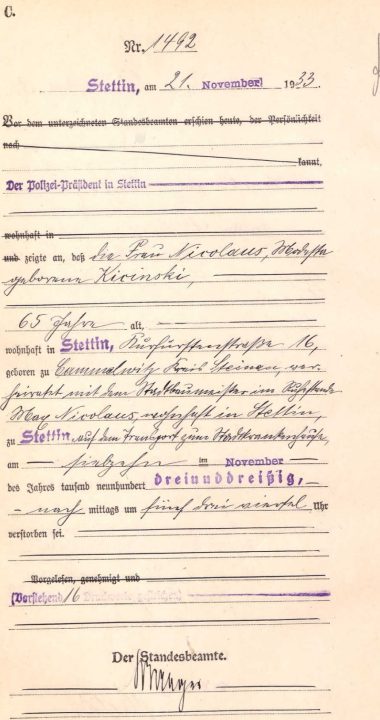 C.
Nr. 1492
Stettin, am 21. November 1933
Vor dem unterzeichneten Standesbeamten erschien heute, der Persönlichkeit
nach kannt,
Der Polizei-Präsident in Stettin
wohnhaft in
und zeigte an, daß die Frau Nicolaus, Modesta
geborene Kicinski,
65 Jahre alt,
wohnhaft in Stettin, Kurfürstenstraße 16,
geboren zu Cammelwitz Kreis Steinau ver-
heiratet mit dem Stadtbaumeister im Ruhestande
Max Nicolaus, wohnhaft in Stettin,
zu Stettin, auf dem Transport zum Stadtkrankenhause,
am siebzehn im November
des Jahres tausend neunhundert dreiunddreißig,
nach mittags um fünf drei viertel Uhr
verstorben sei.
Vorgelesen, genehmigt und
(Vorstehend 16 Druckworte gestrichen)
Der Standesbeamte.